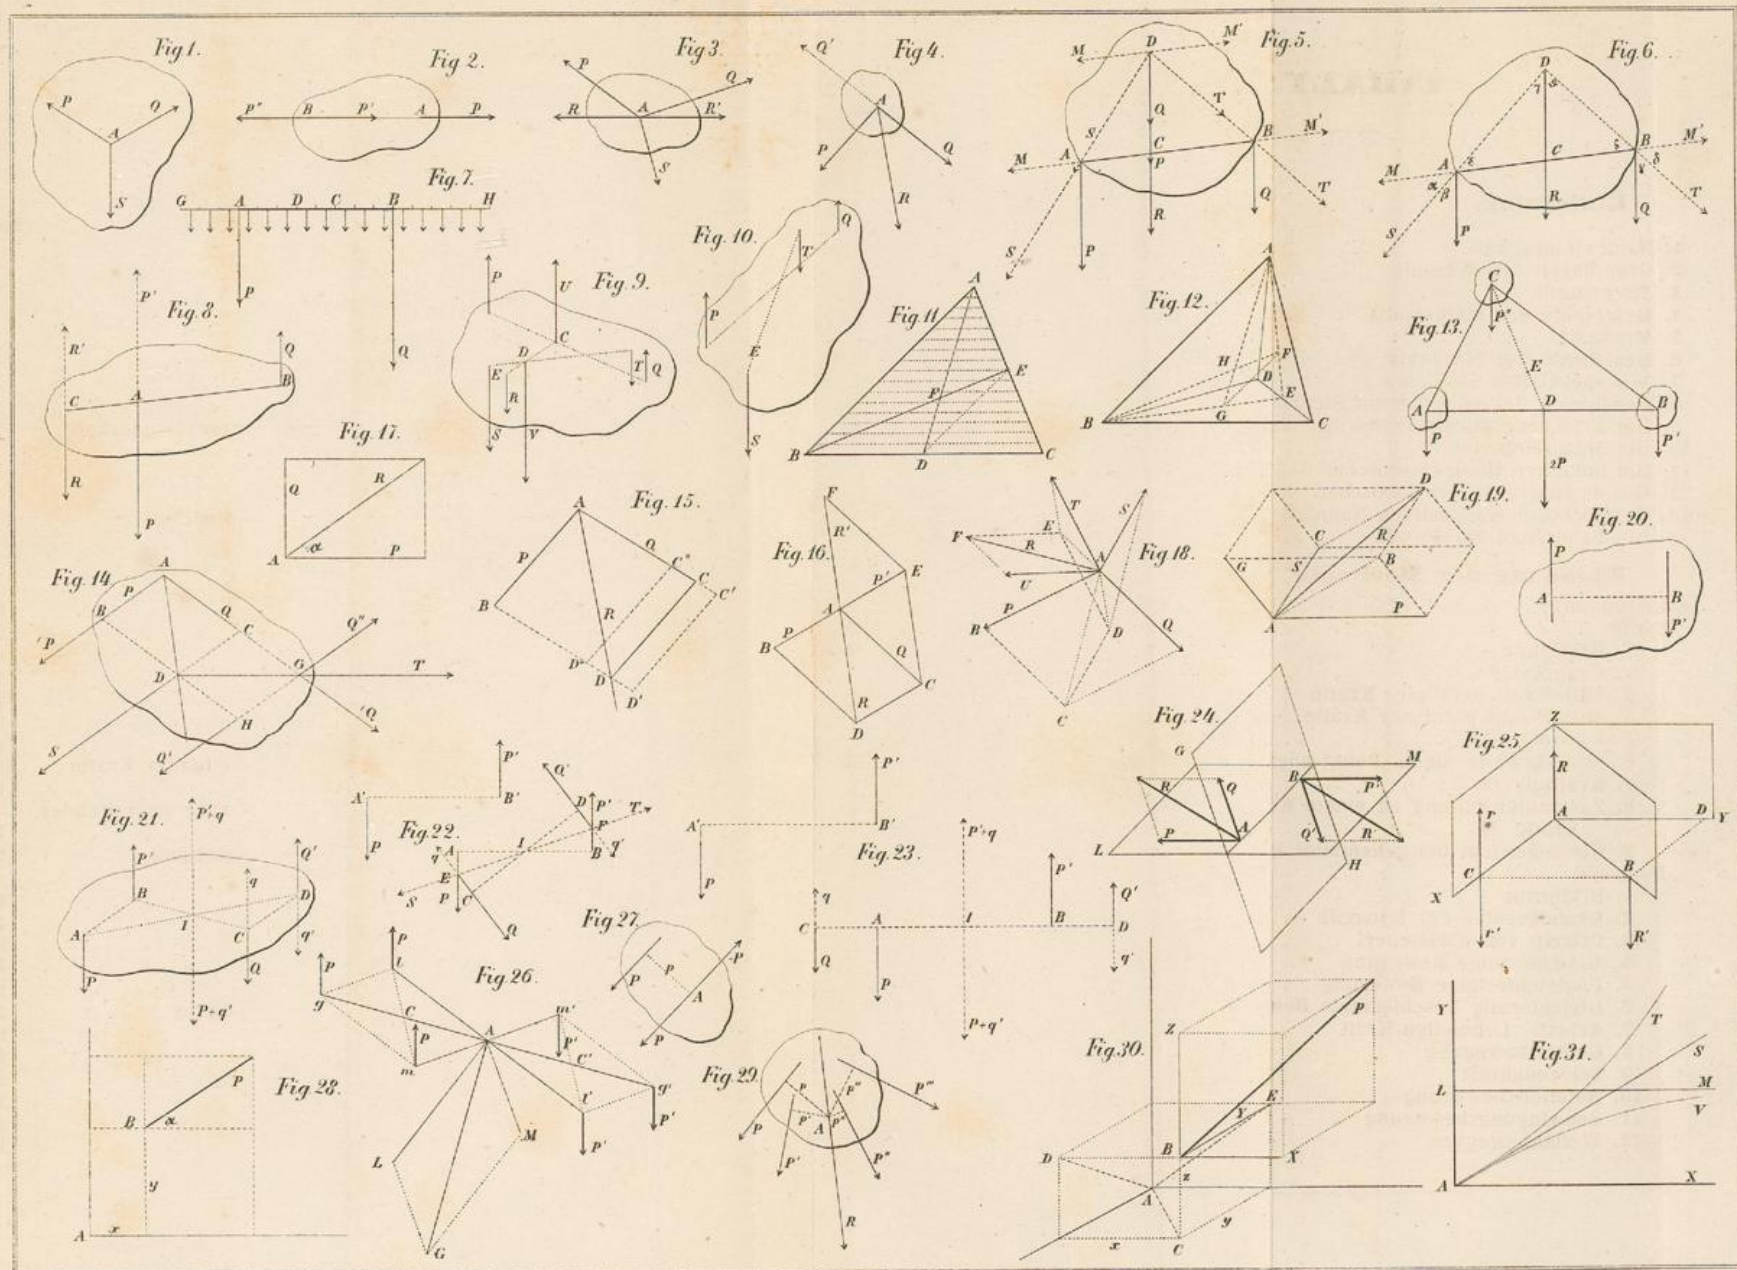 Fig 1.
P Q
A
S
Fig 2.
P" B P' A P
Fig 3.
P Q
R A R'
S
Fig 4.
Q'
A
P Q
R
Fig. 5.
M D M'
Q T
S C B M'
M A P
Q T
R
S P
Fig. 6.
D
γ
ζ B M'
M A ε C
α β γ δ
R Q T
S P
Fig. 7.
G A D C B H
P
Q
Fig. 8.
P'
R' Q
C A B
R
P
Fig. 9.
P U
C
D
E T Q
R
S V
Fig. 10.
Q
T
P
E
S
Fig. 11
A
E
F
B D C
Fig. 12.
A
H F
D
E
B G C
Fig. 13.
C
P"
E
A D B
P P'
2P
Fig. 14
A
P
B Q
C Q"
'P
D G T
H 'Q
S Q'
Fig. 15.
A
P Q
C" C
B C'
R
D" D
D'
Fig. 16.
F
R'
P' E
A
B P
Q
C
R
D
Fig. 17.
Q R
A α P
Fig. 18.
T S
F E
R A
U
P
B Q
D
C
Fig. 19.
D
C R
G S B
P
A
Fig. 20.
P
A B
P'
Fig. 21.
P'+q
P' Q'
B q
D
A I C q'
P Q
P+q'
Fig. 22.
P'
A' B'
P
Q'
D P' T
F
A I B
q
E
S P C
Q
Fig. 23.
P'
A' B'
P
P'+q
P'
q Q'
C A I B D
Q q'
P
P+q'
Fig. 24.
G M
R Q B P'
P A Q' R'
L H
Fig. 25.
Z
R
r A D Y
C B
X
r' R'
Fig. 26.
P
P l
g C A m'
P P'
m C'
g'
l'
M P'
P'
L
G
Fig. 27.
p P
P A
P
Fig. 28.
P
B α
y
A x
Fig. 29.
p p'' P'''
p'
P A
P' P"
R
Fig. 30.
P
Z
E
Y
D B X
z
A
y
x C
Fig. 31.
Y T
S
L M
V
A X